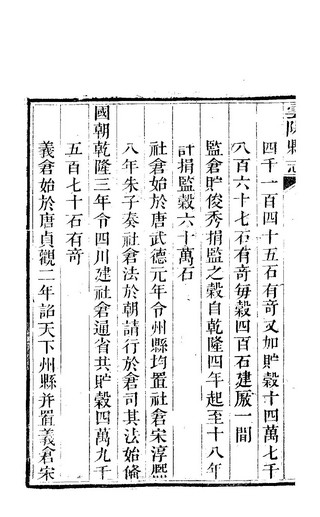 雲陽縣志
四千一百四十五石有奇又加貯穀十四萬七千
八百六十七石有奇每穀四百石建廒一間
監倉貯俊秀捐監之穀自乾隆四年起至十八年
計捐監穀六十萬石
社倉始於唐武德元年令州縣均置社倉宋淳熙
八年朱子奏社倉法於朝請行於倉司其法始備
國朝乾隆三年令四川建社倉通省共貯穀四萬九千
五百七十石有奇
義倉始於唐貞觀二年詔天下州縣并置義倉宋